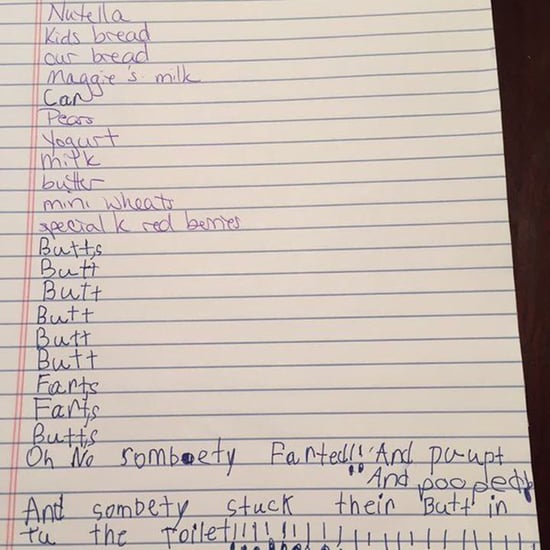 Nutella
Kids bread
our bread
Maggie's milk
Can
Pears
Yogurt
milk
butter
mini wheats
special k red berries
Butts
Butt
Butt
Butt
Butt
Butt
Farts
Farts
Butts
Oh No sombety Farted!! And pu-upt
And pooped
And sombety stuck their Butt in
tu the toilet!!!!!!!!!!!!!!!!!